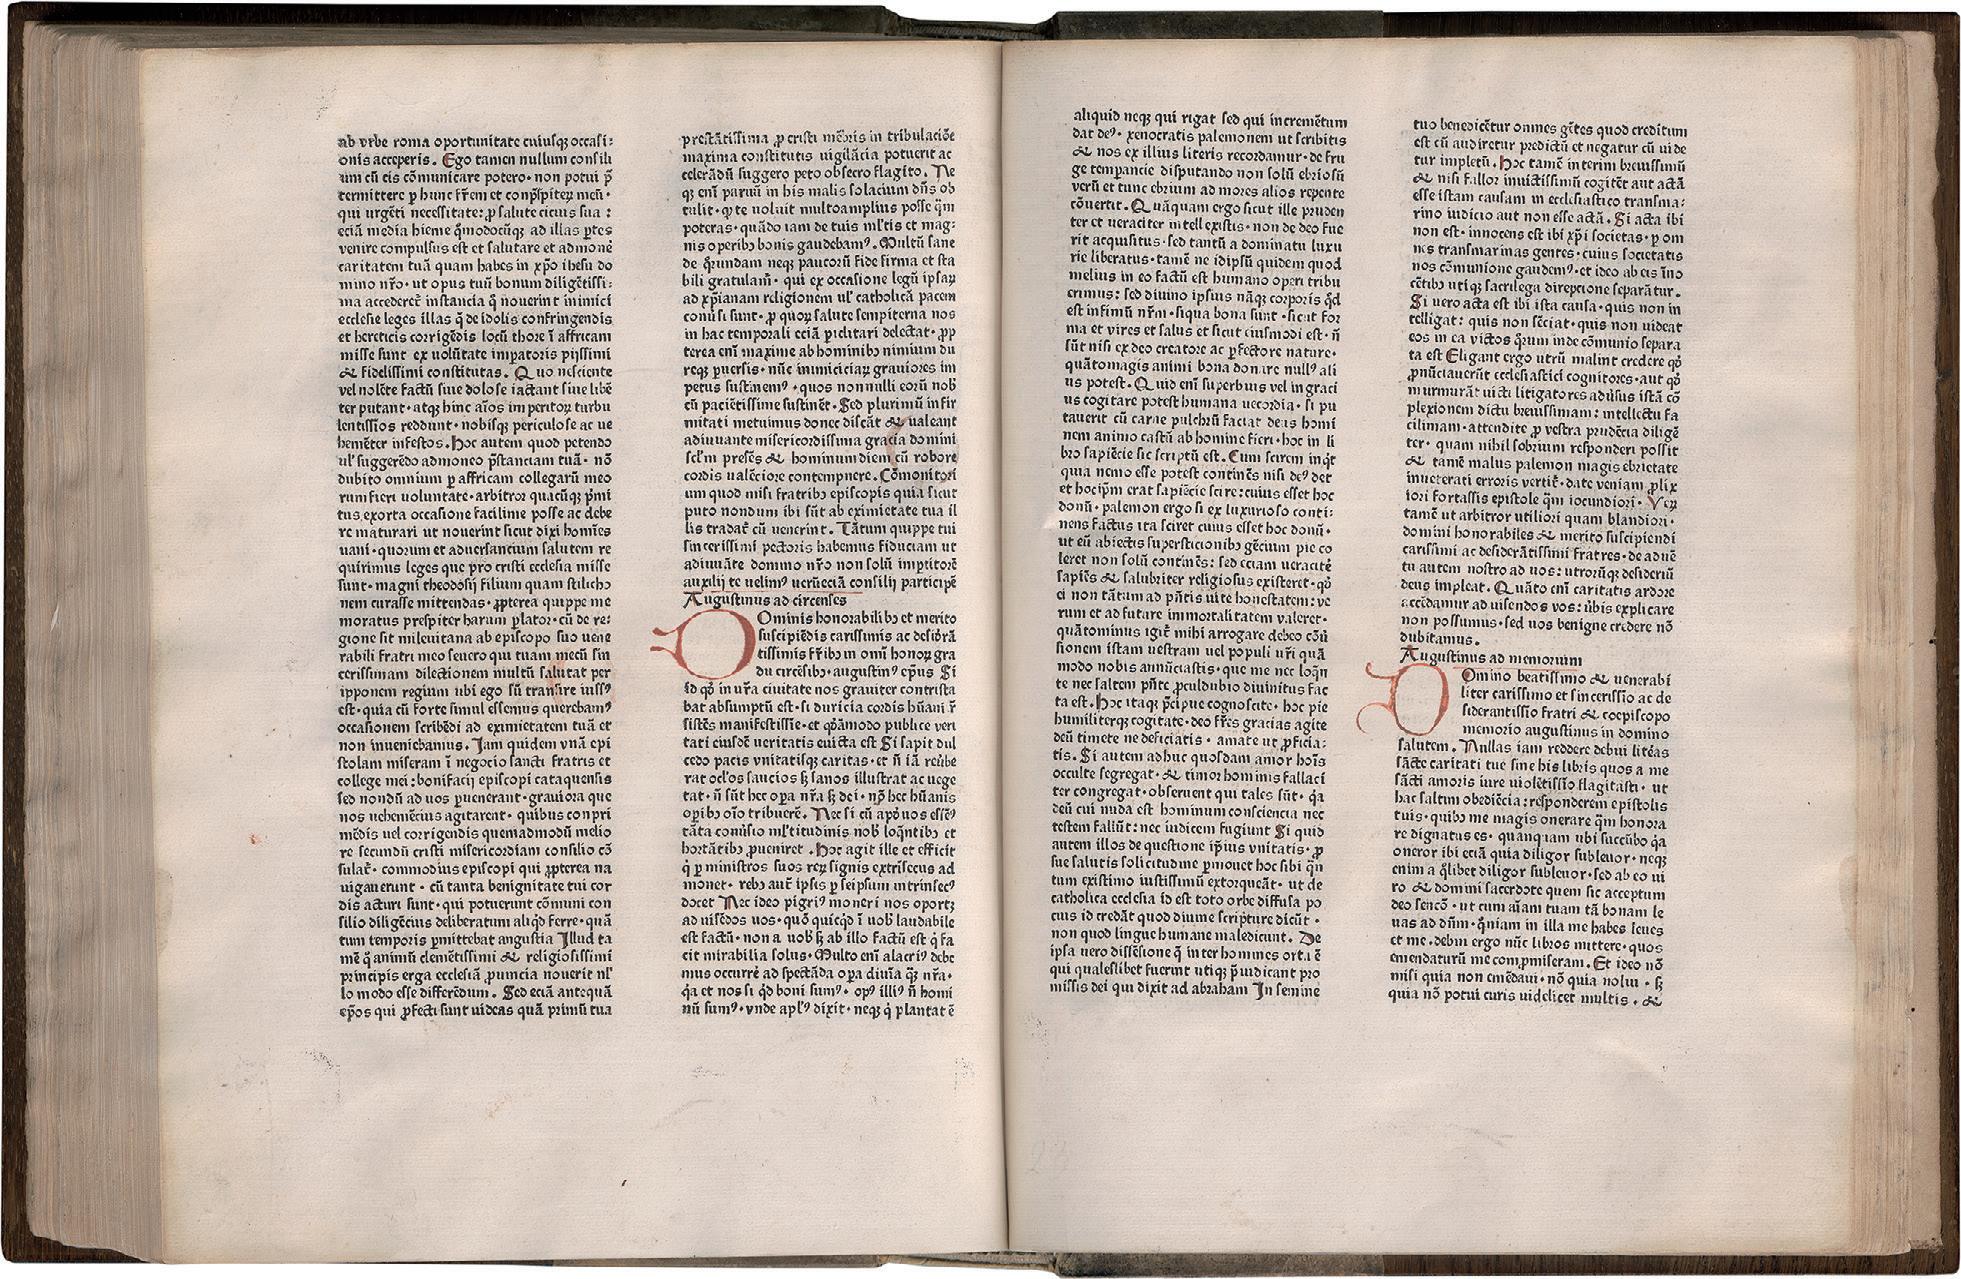 ab vrbe roma oportunitate cuiusqꝫ occasi⸗
onis acceperis. Ego tamen nullum consiliū
um cū eis cōmunicare potero· non potui p̄
termittere ꝑ hunc fr̄em et conp̄spiteꝝ meū·
qui urgēti necessitate: ꝓ salute ciuis sua:
eciā media hieme q̄modocūqꝫ ad illas ꝑtes
venire compulsus est et salutare et admone
caritatem tuā quam habes in xp̄o ihesu do
mino nr̄o· ut opus tuū bonum diligētissi⸗
ma acceleret instancia q̄ nouerint inimici
ecclesie leges illas q̄ de idolis confringendis
et hereticis corrigēdis locū thore ī affricam
misse sunt ex volūtate imꝑatoris pijssimi
& fidelissimi constitutas. Quo nesciente
vel nolēte factū siue dolose iactant siue libē
ter putant· atqꝫ hinc aīos imꝑitoꝝ turbu
lentissios reddunt· nobisqꝫ periculose ac ue
hemēter infestos. Hoc autem quod petendo
ul' suggerēdo admoneo p̄stanciam tuā· nō
dubito omnium ꝑ affricam collegarū meo
rum fieri voluntate· arbitror quacūqꝫ p̄mi
tus exorta occasione facilime posse ac debe
re maturari ut nouerint sicut dixi homīes
uani· quorum et aduersancium salutem re
quirimus leges que pro cristi ecclesia misse
sunt· magni theodosij filium quam stilicho
nem curasse mittendas· ꝓpterea quippe me
moratus prespiter harum ꝑlator· cū de re⸗
gione sit mileuitana ab episcopo suo uene
rabili fratri meo seuero qui tuam mecū sin
cerissimam dilectionem multū salutat per
ipponem regium ubi ego sū transire iussꝰ
est· quia cū forte simul essemus querebamꝰ
occasionem scribēdi ad eximietatem tuā et
non inueniebamus. Iam quidem vnā epi
stolam miseram ī negocio sancti fratris et
college mei: bonifacij episcopi cataquensis
sed nondū ad uos ꝑuenerant· grauiora que
nos uehemēcius agitarent· quibus conpri
mēdis uel corrigendis quemadmodū melio
re secundū cristi misericordiam consilio cō
sulat̄· commodius episcopi qui ꝓpterea na
uigauerunt· cū tanta benignitate tui cor
dis acturi sunt· qui potuerunt cōmuni con
silio diligēcius deliberatum aliq̇d ferre· quā
tum temporis ꝑmittebat angustia Illud ta
mē q̄ animū clemētissimi & religiosissimi
principis erga ecclesiā ꝓuincia nouerit nl'
lo modo esse differēdum. Sed eciā anteq̄uā
ep̄os qui ꝓfecti sunt uideas quā primū tua
prestātissima ꝓ cristi mēbris in tribulaciōe
maxima constitutis uigilācia potuerit ac
celerādū suggero peto obsecro flagito. Ne
qꝫ enī paruū in his malis solacium dn̄s ob
tulit· qꝫ te voluit multoamplius posse q̄m
poteras· quādo iam de tuis ml'tis et mag⸗
nis operibꝫ bonis gaudebamꝰ. Multū sane
de q̄rundam neqꝫ paucorū fide firma et sta
bili gratulam̄· qui ex occasione legū ipsaꝝ
ad xp̄ianam religionem ul' catholicā pacem
conūsi sunt· ꝓ quoꝝ salute sempiterna nos
in hac temporali eciā ꝑiclitari delectat· ꝓp
terea enī maxime ab hominibꝫ nimium du
reqꝫ ꝑuersis· nūc inimiciciaꝝ grauiores im
petus sustinemꝰ· quos nonnulli eorū nob̄
cū pacietissime sustinēt. Sed plurimū infir
mitati metuimus donec discāt & ualeant
adiuuante misericordissima gracia domini
scl'm presēs & hominum diem cū robore
cordis ualēciore contempnere. Cōmonitori
um quod misi fratribꝫ episcopis quia sicut
puto nondum ibi sūt ab eximietate tua il
lis tradat̄ cū venerint. Tātum quippe tui
sincerissimi pectoris habemus fiduciam ut
adiuuāte domino nr̄o non solū impititorē
auxilij te uelimꝰ uerūeciā consilij participē
Augustinus ad circenses
DOminis honorabilibꝫ et merito
suscipiēdis carissimis ac desidrā
tissimis fr̄ibꝫ in omī honoꝝ gra
du circēsibꝫ· augustinꝰ ep̄us Si
id qꝫ in ur̄a ciuitate nos grauiter contrista
bat absumptū est· si duricia cordis hūani r̄
sistēs manifestissie· et qꝫāmodo publice veri
tati eiusdē ueritatis euicta est Si sapit dul
cedo pacis vnitatisqꝫ caritas· et n̄ iā reūbe
rat ocl'os saucios ꝫ sanos illustrat ac uege
tat· n̄ sūt hec oꝑa nr̄a ꝫ dei· nō hec hūanis
oꝑibꝫ oīo tribuerē. Nec si cū apꝺ uos essēꝰ
tāta conūsio ml'titudinis nob̄ loq̄ntibꝫ et
hortātibꝫ ꝓueniret. Hoc agit ille et efficit
q̇ ꝑ ministros suos reꝝ signis extrīsecus ad
monet· rebꝫ aut̄ ipsis ꝑ seipsum intrinsecꝰ
docet Nec ideo pigriꝰ moneri nos oportꝫ
ad uisēdos uos· quō quicq̇d ī uob̄ laudabile
est factū· non a uob̄ ꝫ ab illo factū est q̇ fa
cit mirabilia solus· Multo enī alacriꝰ debe
mus occurrē ad spectāda oꝑa diuīa qꝫ nr̄a·
q̇a et nos si q̇d boni sumꝰ· opꝰ illiꝰ n̄ homi
nū sumꝰ· vnde apl'ꝰ dixit· neqꝫ q̇ plantat ē
aliquid neqꝫ qui rigat sed qui incremētum
dat deꝰ· xenocratis palemonem ut scribitis
& nos ex illius literis recordamur· de fru
ge temperancie disputando non solū ebriosū
verū et tunc ebrium ad mores alios repente
cōuertit. Quāquam ergo sicut ille pruden
ter et ueraciter intellexistis· non de deo fue
rit acquisitus· sed tantū a dominatu luxu
rie liberatus· tamē ne idipsū quidem quod
melius in eo factū est humano operi tribu
erimus: sed diuino ipsius nāqꝫ corporis q̇d
est infimū nr̄m· siqua bona sunt· sicut for
ma et vires et salus et sicut eiusmodi est· n̄
sūt nisi ex deo creatore ac ꝑfectore nature·
quātomagis animi bona donare nullꝰ ali
us potest. Quid enī superbius vel ingraci
us cogitare potest humana uecordia· si pu
tauerit cū carne pulchrū faciat deus homi
nem animo castū ab homine fieri· hoc in li
bro sapiēcie sic scriptū est. Cum scirem inq̇t
quia nemo esse potest continēs nisi deꝰ det
et hocip̄m erat sapiēcie scire: cuius esset hoc
donū· palemon ergo si ex luxurioso conti⸗
nens factus ita sciret cuius esset hoc donū·
ut eū abiectis superstitionibꝫ gēcium pie co
leret non solū continēs: sed eciam ueracitē
sapiēs & salubriter religiosus existeret· qꝫ
ei non tātum ad p̄ntis uite honestatem: ve
rum et ad future immortalitatem valeret·
quātominus igit̄ mihi arrogare debeo cōū
sionem istam vestram uel populi ur̄i quā
modo nobis annūciastis· que me nec loq̄n
te nec saltem p̄nte ꝓculdubio diuinitus fac
ta est. Hoc itaqꝫ p̄cipue cognoscite· hoc pie
humiliterqꝫ cogitate· deo fr̄es gracias agite
deū timete ne deficiatis· amate ut ꝓficia⸗
tis. Si autem adhuc quosdam amor hoīs
occulte segregat· & timor hominis fallaci
ter congregat· obseruent qui tales sūt· q̇a
deū cui nuda est hominum consciencia nec
testem faliūt: nec iudicem fugiunt Si quid
autem illos de questione ip̄ius vnitatis· ꝓ
sue salutis solicitudine ꝑmouet hoc sibi q̄n
tum existimo iustissimū extorqueāt· ut de
catholica ecclesia id est toto orbe diffusa po
cius id credāt quod diuine scripture dicūt·
non quod lingue humane maledicunt. De
ipsa uero dissēsione q̄ inter homines orta ē
qui qualeslibet fuerint utiqꝫ p̄iudicant pro
missis dei qui dixit ad abraham In semine
tuo benedicētur omnes gētes quod creditum
est cū audiretur predictū et negatur cū uide
tur impletū. Hoc tamē interim breuissimū
& nisi fallor inuictissimū cogitēt aut actā
esse istam causam in ecclesiastico transma⸗
rino iudicio aut non esse actā. Si acta ibi
non est· innocens est ibi xp̄i societas· ꝑ om
nes transmarinas gentes· cuius societatis
nos cōmunione gaudemꝰ· et ideo ab eis īno
cētibꝫ utiqꝫ sacrilega direpcione separātur.
Si uero acta est ibi ista causa· quis non in
telligat: quis non sēciat· quis non uideat
eos in ea victos q̇rum inde cōmunio separa
ta est Eligant ergo utrū malint credere qꝫ
ꝓnūciauerūt ecclesiastici cognitores· aut qꝫ
murmurāt uicti litigatores adūsus istā cō
plexionem dictu breuissimam: intellectu fa
cilimam· attendite ꝓ vestra prudēcia diligē
ter· quam nihil sobrium responderi possit
& tamē malus palemon magis ebrietate
inueterati erroris vertit̄· date veniam ꝓlix
iori fortassis epistole q̄m iocundiori· Veꝝ
tamē ut arbitror utiliori quam blandiori·
domini honorabiles & merito suscipiendi
carissimi ac desiderātissimi fratres· de aduē
tu autem nostro ad uos: utrorūqꝫ desideriū
deus impleat. Quāto enī caritatis ardore
accēdamur ad uisendos vos: ūbis explicare
non possumus· sed uos benigne credere nō
dubitamus.
Augustinus ad memorium
DOmino beatissimo & uenerabi
liter carissimo et sincerissio ac de
siderantissio fratri & coepiscopo
memorio augustinus in domino
salutem. Nullas iam reddere debui litēas
sācte caritati tue sine his libris quos a me
sācti amoris iure violētissio flagitasti· ut
hac saltim obediēcia: responderem epistolis
tuis· quibꝫ me magis onerare q̄m honora
re dignatus es· quanquam ubi succūbo q̇a
oneror ibi eciā quia diligor subleuor· neqꝫ
enim a q̇libet diligor subleuor· sed ab eo ui
ro & domini sacerdote quem sic acceptum
deo senciō· ut cum aīam tuam tā bonam le
uas ad dn̄m· q̄niam in illa me habes leues
et me· debui ergo nūc libros mittere· quos
emendaturū me comꝓmiseram. Et ideo nō
misi quia non emēdaui· nō quia nolui· ꝫ
quia nō potui curis uidelicet multis· &